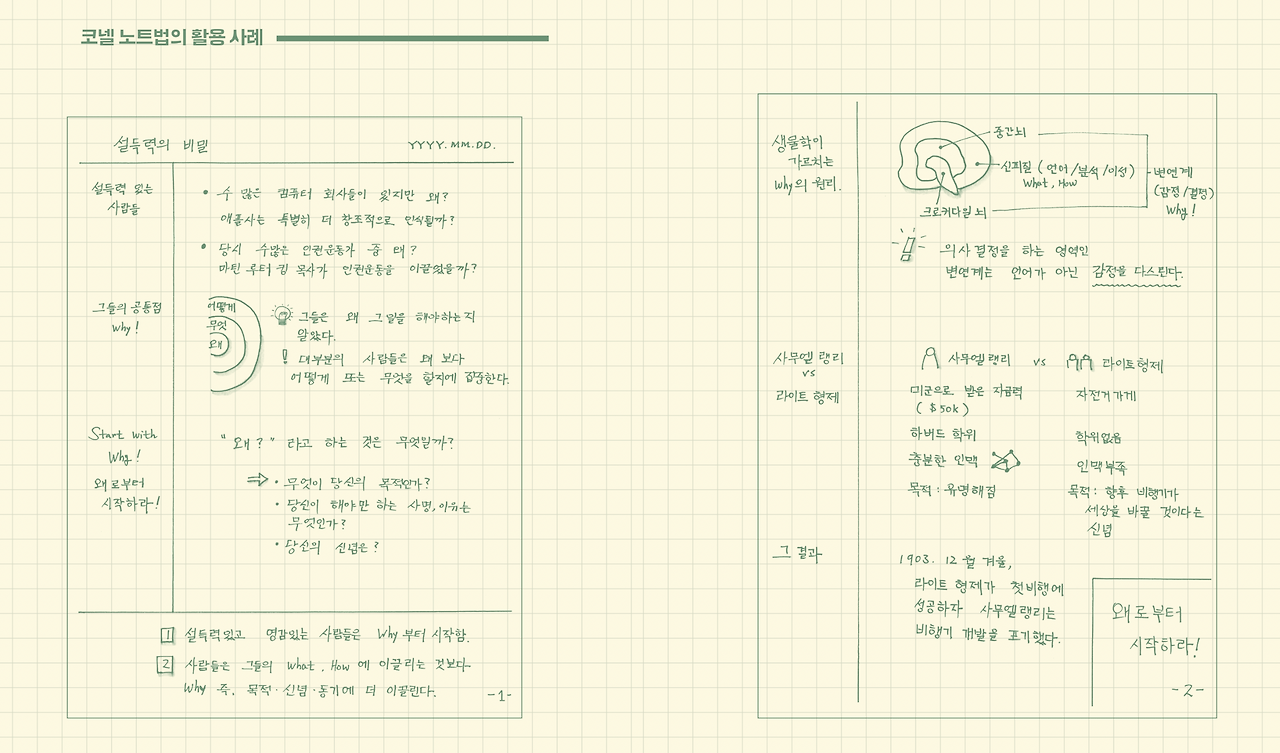 코넬 노트법의 활용 사례
설득력의 비밀
YYYY.MM.DD.
설득력 있는
사람들
• 수 많은 컴퓨터 회사들이 있지만 왜?
애플사는 특별히 더 창조적으로 인식될까?
• 당시 수많은 인권운동가 중 왜?
마틴 루터 킹 목사가 인권운동을 이끌었을까?
그들의 공통점
why!
어떻게
무엇
왜
그들은 왜 그 일을 해야하는지
알았다.
! 대부분의 사람들은 왜 보다
어떻게 또는 무엇을 할지에 집중한다.
Start with
Why!
왜로부터
시작하라!
"왜?" 라고 하는 것은 무엇일까?
⇒ • 무엇이 당신의 목적인가?
• 당신이 해야만 하는 사명, 이유는
무엇인가?
• 당신의 신념은?
1 설득력있고 영감있는 사람들은 Why 부터 시작함.
2 사람들은 그들의 what, How 에 이끌리는 것보다
Why 즉. 목적·신념·동기에 더 이끌린다.
-1-
생물학이
가르치는
why의 원리.
중간뇌
신피질 (언어/분석/이성)
What, How
크로커다일 뇌
변연계
(감정/결정)
Why!
의사결정을 하는 영역인
변연계는 언어가 아닌 감정을 다스린다.
사무엘 랭리
vs
라이트 형제
사무엘 랭리 vs 라이트형제
미군으로 받은 자금력
($50k)
자전거가게
하버드 학위
학위없음
충분한 인맥
인맥부족
목적 : 유명해짐
목적 : 향후 비행기가
세상을 바꿀 것이다는
신념
그 결과
1903. 12월 겨울,
라이트 형제가 첫비행에
성공하자 사무엘랭리는
비행기 개발을 포기했다.
왜로부터
시작하라!
-2-